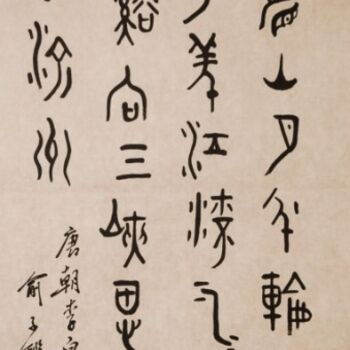 眉山月半輪
羌江
溪向三峽思
渝州
唐朝李白
俞子